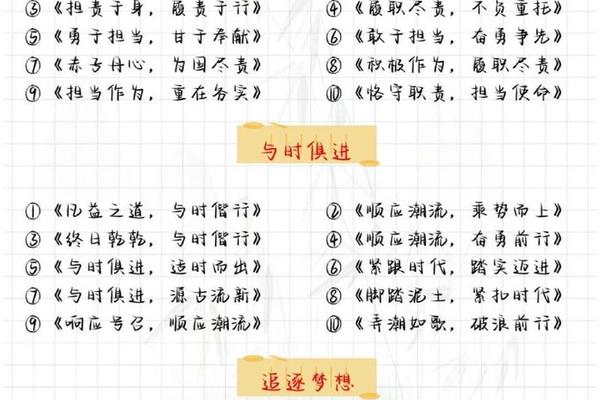 ③《担责于身，履责于行》 ④《履职尽责，不负重托》
⑤《勇于担当，甘于奉献》 ⑥《敢于担当，奋勇争先》
⑦《赤子丹心，为国尽责》 ⑧《积极作为，履职尽责》
⑨《担当作为，重在务实》 ⑩《恪守职责，担当使命》
与时俱进
①《凡益之道，与时偕行》 ②《顺应潮流，乘势而上》
③《终日乾乾，与时偕行》 ④《顺应潮流，奋勇前行》
⑤《与时俱进，适时而出》 ⑥《紧跟时代，踏实迈进》
⑦《与时俱进，源古流新》 ⑧《脚踏泥土，紧扣时代》
⑨《响应号召，顺应潮流》 ⑩《弄潮如歌，破浪前行》
追逐梦想